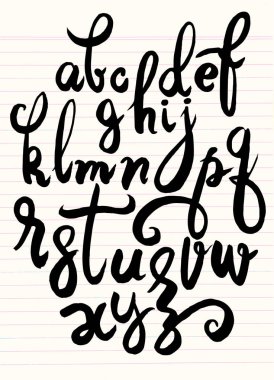 abcdef
ghij
klmnpq
rstusvw
xyz